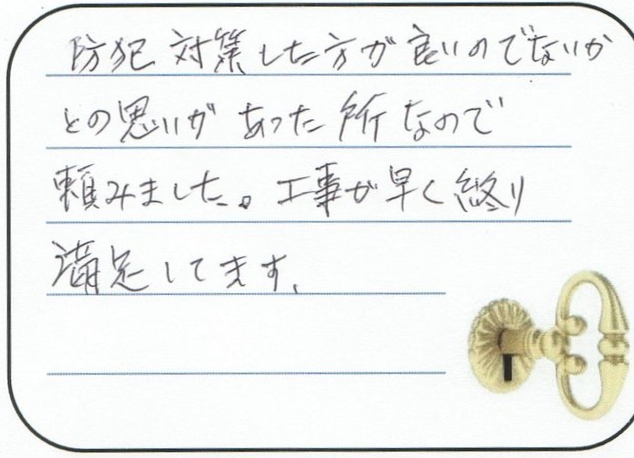 防犯対策した方が良いのでないか
との思いがあった所なので
頼みました。工事が早く終り
満足してます。